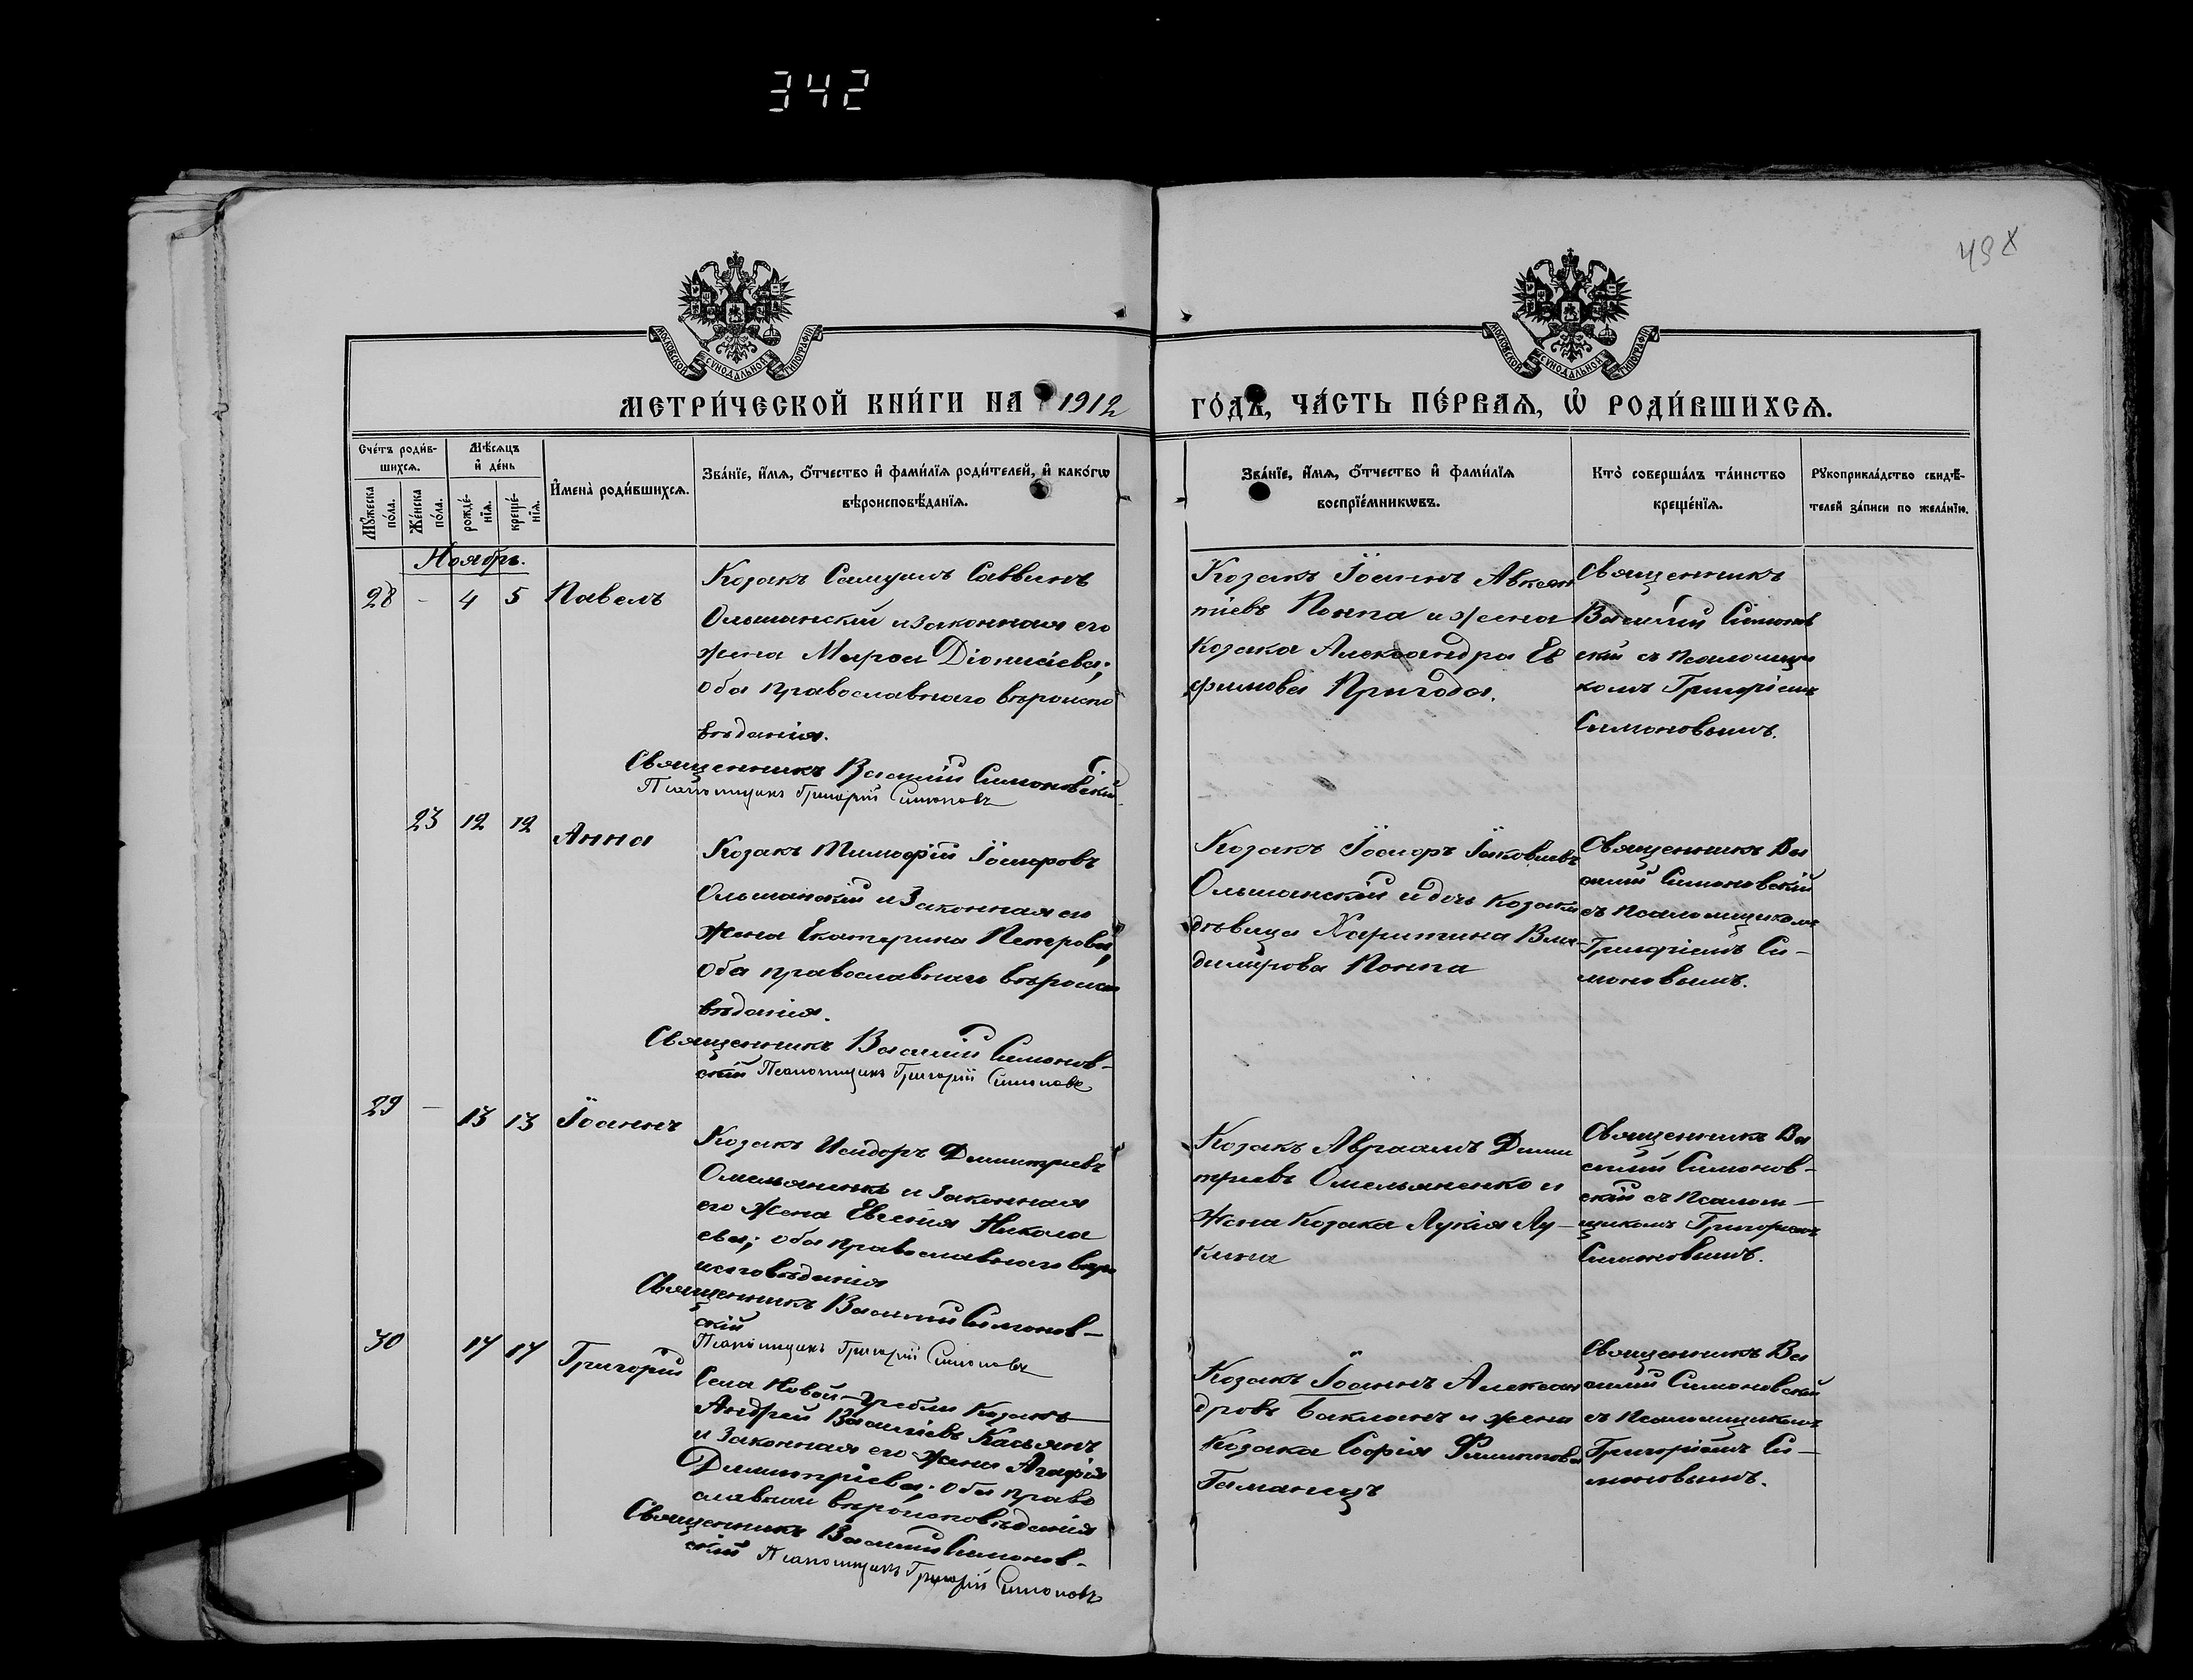 342
498
МОСКОВСКОЙ СѴНОДАЛЬНОЙ ТИПОГРАФІИ
МОСКОВСКОЙ СѴНОДАЛЬНОЙ ТИПОГРАФІИ
МЕТРИ́ЧЕСКОЙ КНИ́ГИ НА 1912 ГО́ДЪ, ЧА́СТЬ ПЕ́РВАѦ, Ѡ҆ РОДИ́ВШИХСѦ.
Сче́тъ роди́в-
шихсѧ.
Мѣ́сѧцъ
и҆ де́нь
Мꙋ́жеска
по́ла.
Же́нска
по́ла.
рожде́-
нїѧ.
креще́-
нїѧ.
И҆мена̀ роди́вшихсѧ.
Зва́нїе, и҆́мѧ, ѻ҆́тчество и҆ фами́лїѧ роди́телей, и҆ како́гѡ
вѣроисповѣ́данїѧ.
Зва́нїе, и҆́мѧ, ѻ҆́тчество и҆ фами́лїѧ
воспрїе́мникѡвъ.
Кто̀ соверша́лъ та́инство
креще́нїѧ.
Рꙋкоприкла́дство свидѣ́-
телей за́писи по жела́нїю.
Ноябрь.
28 - 4 5 Павелъ
Козакъ Самуилъ Саввинъ
Ольшанскій и законная его
жена Марфа Діонисіева;
оба православнаго вѣроиспо
вѣданія.
Священникъ Василій Симоновскій
Псаломщикъ Григорій Симоновъ
Козакъ Іоаннъ Авксен
тіевъ Попна и жена
Козака Александра Ев
фимова Пригода.
Священникъ
Василій Симонов
скій съ псаломщи
комъ Григоріемъ
Симоновымъ.
23 12 12 Анна
Козакъ Тимофій Іосифовъ
Ольшанскій и законная его
жена Екатерина Петрова;
оба православнаго вѣроиспо
вѣданія.
Священникъ Василій Симонов-
скій Псаломщикъ Григорій Симоновъ
Козакъ Іосифъ Іаковлевъ
Ольшанскій и дочь козака
дѣвица Харитина Вла-
димірова Попна
Священникъ Ва
силій Симоновскій
съ псаломщикомъ
Григоріемъ Си-
моновымъ.
29 - 13 13 Іоаннъ
Козакъ Исидоръ Димитріевъ
Омельяненко и законная
его жена Евгенія Никола
ева; оба православнаго вѣро
исповѣданія
Священникъ Василій Симонов-
скій
Псаломщикъ Григорій Симоновъ
Козакъ Авраамъ Дими
тріевъ Омельяненко и
жена козака Лукія Лу-
кина
Священникъ Ва
силій Симонов-
скій съ псалом-
щикомъ Григоріемъ
Симоновымъ.
30 17 17 Григорій
Села Новой-Гребли козакъ
Андрей Василіевъ Касьянъ
и законная его жена Агафія
Димитріева; оба право
славнаго вѣроисповѣданія
Священникъ Василій Симонов-
скій Псаломщикъ Григорій Симоновъ
Козакъ Іоаннъ Алексан
дровъ Бакланъ и жена
Козака Софія Филиппова
Гаманецъ
Священникъ Ва
силій Симоновскій
съ псаломщикомъ
Григоріемъ Си-
моновымъ.